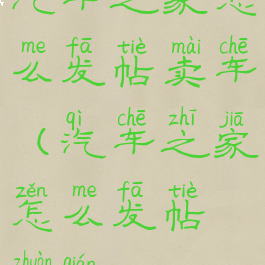 汽车之家怎
me fā tiè mài chē
么发帖卖车
qì chē zhī jiā
（汽车之家
zěn me fā tiè
怎么发帖
zhuàn qián